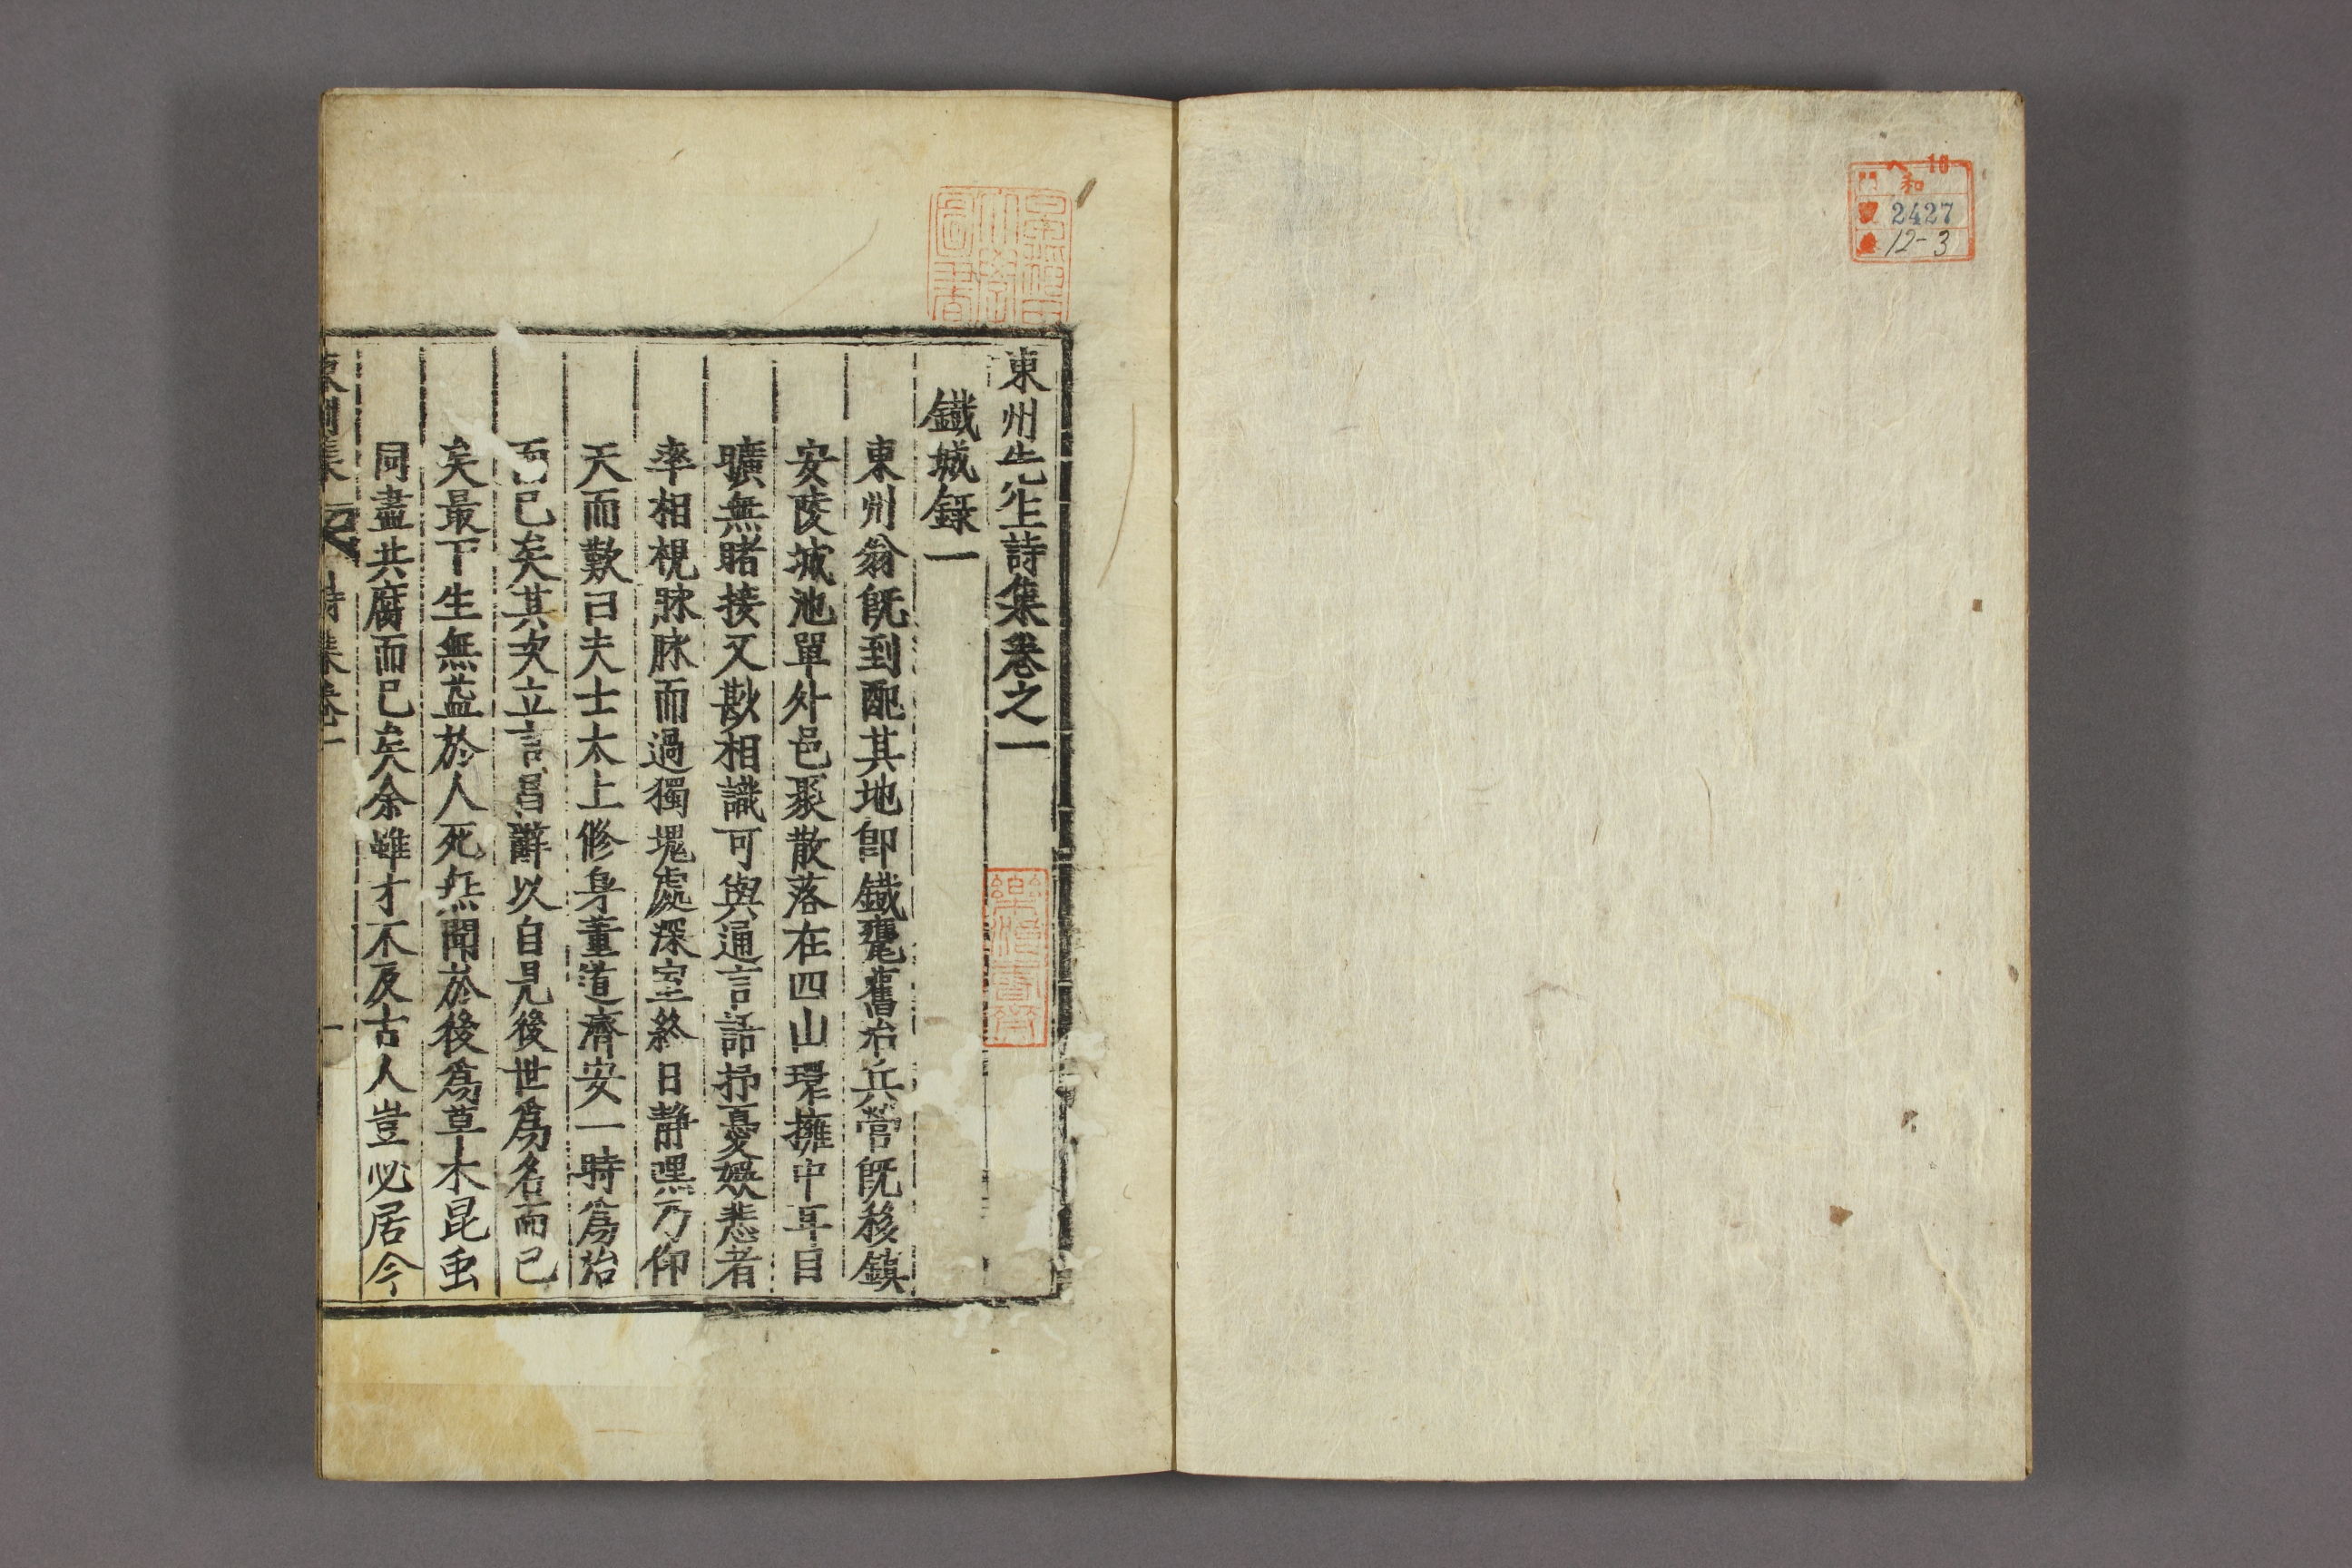 和
2427
12-3
東州先生詩集卷之一
鐵城錄一
東州翁既到配其地卽鐵甕舊治兵營既移鎮
安陵城池單外邑聚散落在四山環擁中耳目
曠無睹接又尠相識可與通言語抒憂娛悲者
率相視脉脉而過獨塊處深室終日靜嘿乃仰
天而歎曰夫士太上修身董道濟安一時爲治
而已矣其次立言昌辭以自見後世爲名而已
矣最下生無益於人死無聞於後爲草木昆虫
同盡共腐而已矣余雖才不及古人豈必居今
東州集
詩集卷一
一